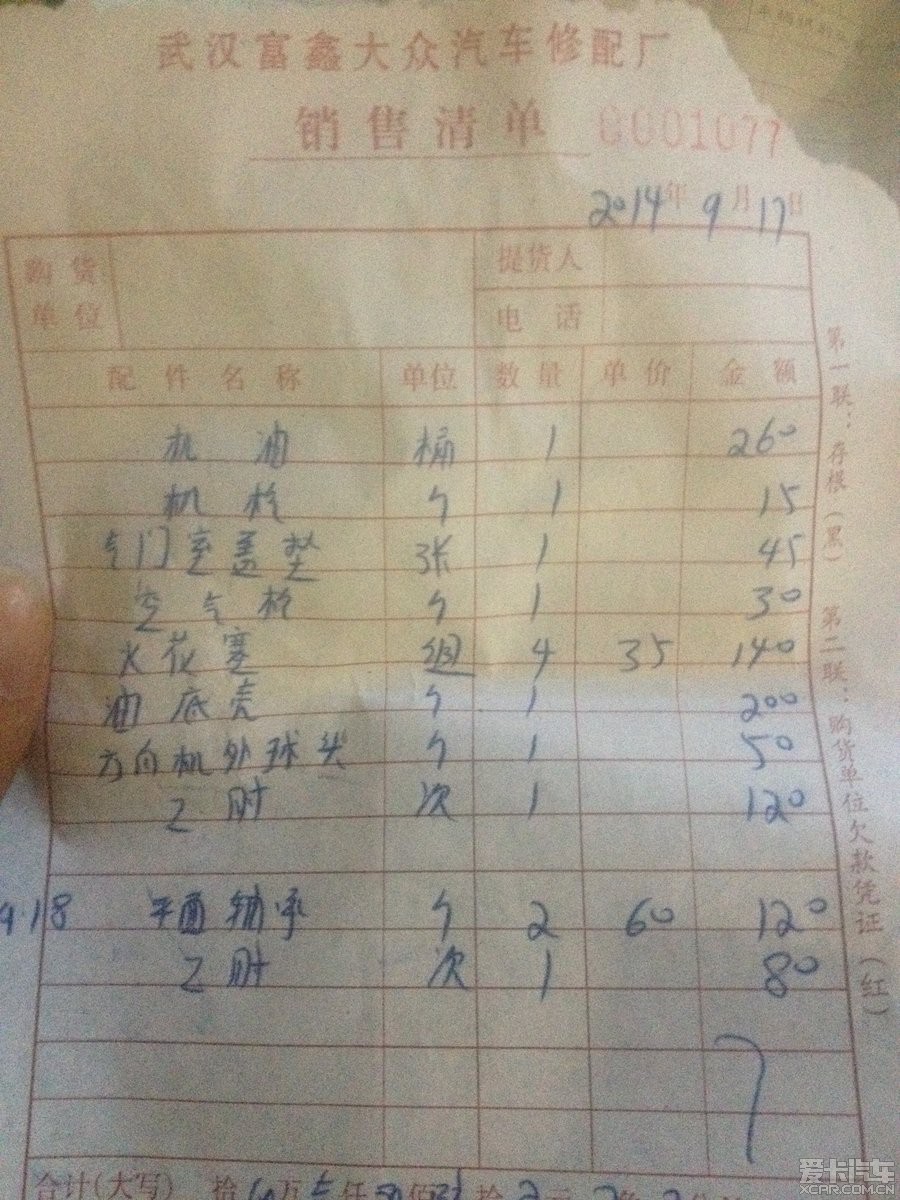 武汉富鑫大众汽车修配厂
销售清单 0001077
2014年9月17日
购货单位 提货人
电话
配件名称 单位 数量 单价 金额
机油 桶 1 260
机柃 个 1 15
气门室盖垫 张 1 45
空气柃 个 1 30
火花塞 组 4 35 140
油底壳 个 1 200
方向机外球头 个 1 50
工时 次 1 120
9.18 平面轴承 个 2 60 120
工时 次 1 80
合计(大写) 拾 万 仟 佰 拾
第一联：存根（黑） 第二联：购货单位欠款凭证（红）
爱卡汽车
XCPR.COM.CN